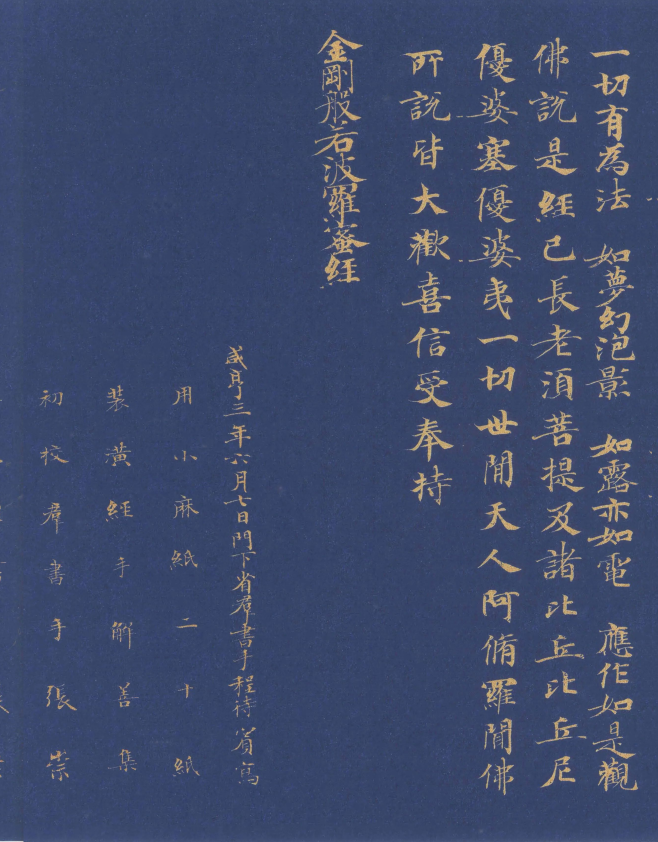 一切有為法　如夢幻泡景　如露亦如電　應作如是觀
佛說是經已長老湏菩提及諸比丘比丘尼
優婆塞優婆夷一切世閒天人阿脩羅聞佛
所說皆大歡喜信受奉持
金剛般若波羅蜜経
咸亨三年六月七日門下省群書手程待賓寫
用小麻紙二十紙
裝潢経手解善集
初校群書手張崇